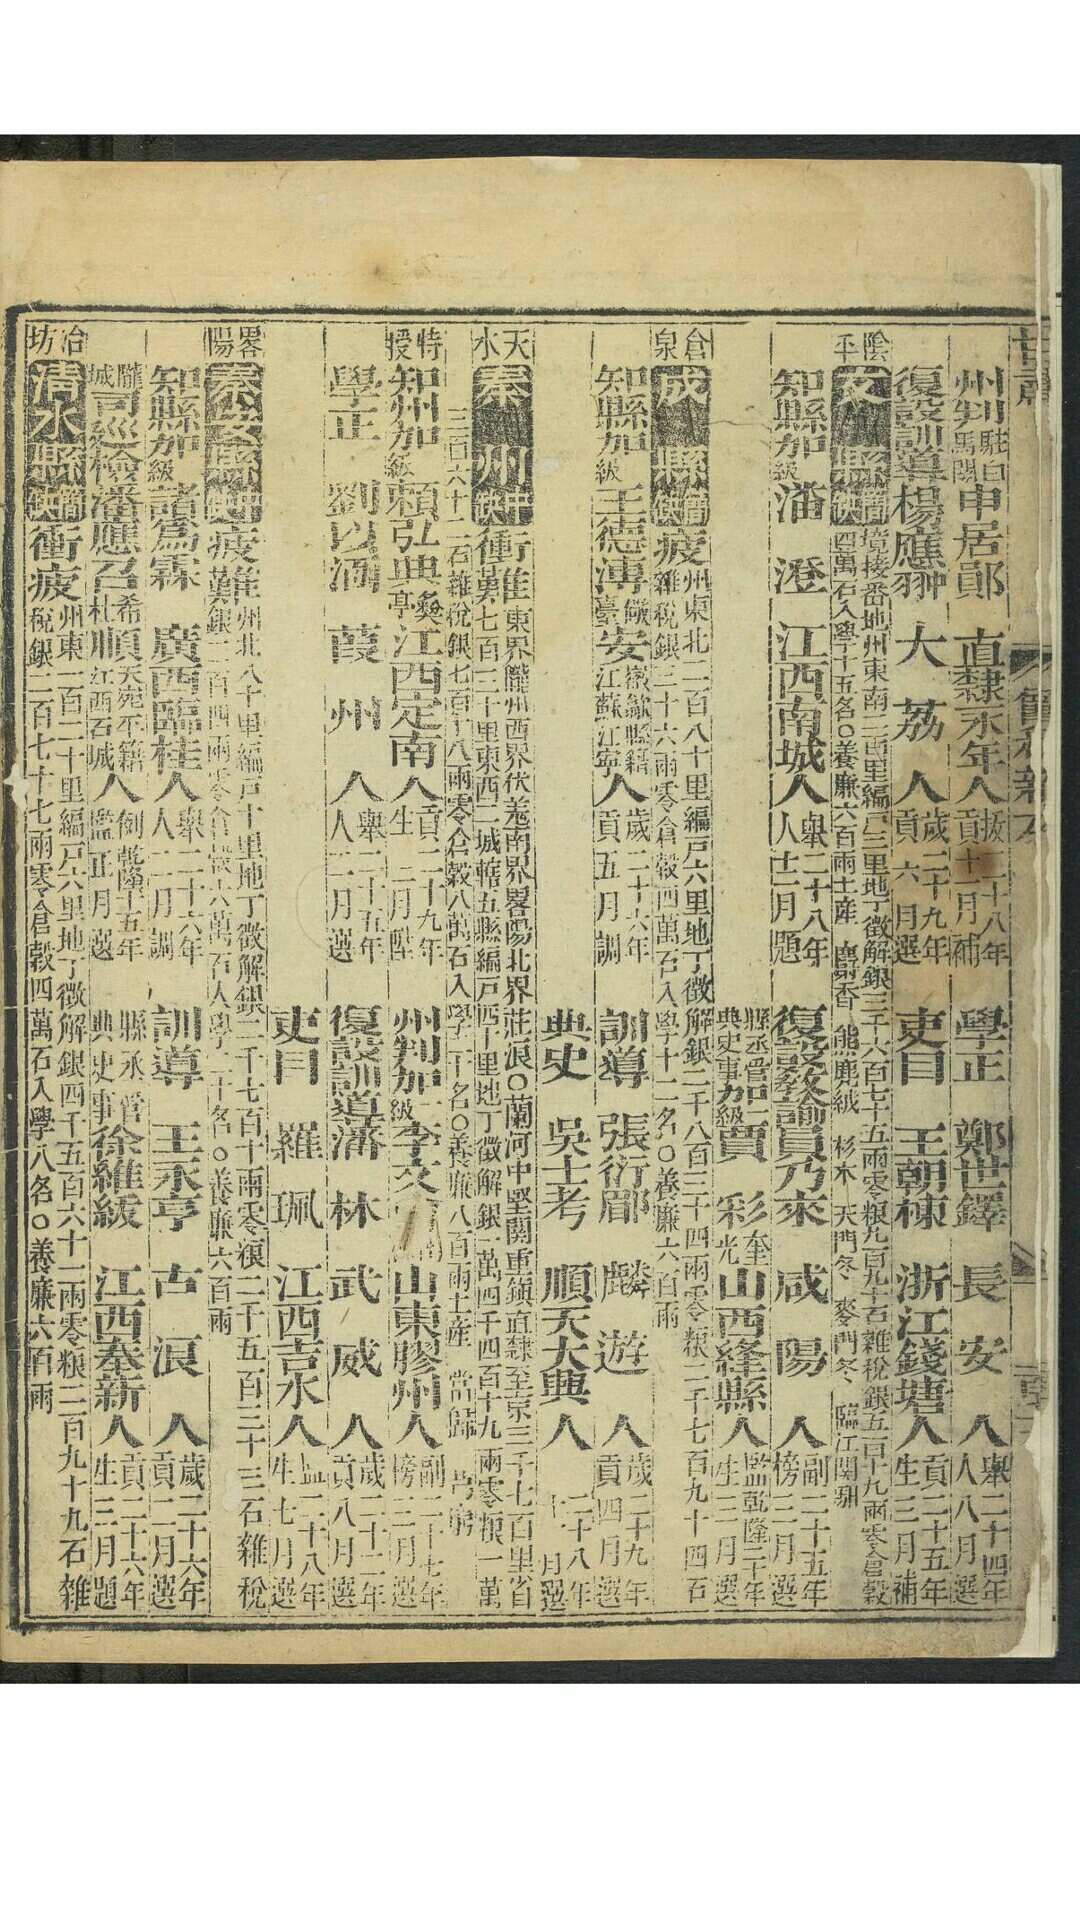 州判駐白馬關申居鄖 直隸永年人拔貢二十八年十一月補 學正 鄭世鐸 長安 人舉人二十四年八月選
復設訓導楊應翀 大荔 人歲貢二十九年六月選 吏目 王朝棟 浙江錢塘人貢生二十五年三月補
陰平 文縣簡缺 境接番地州東南二百里編戶三里地丁徵解銀三千六百七十五兩零糧九百九十石雜稅銀五百十九兩零倉穀四萬石入學十五名○養廉六百兩土産 麝香 熊 鹿絨 杉木 天門冬 麥門冬 臨江關驛
知縣加級潘 澄 江西南城人舉人二十八年十二月題 復設教諭員乃來 咸陽 人副榜二十五年三月選
縣丞管典史事加一級賈 彩奎光山西絳縣人監生乾隆二十年三月選
倉泉 成縣簡缺疲州東北二百八十里編戶六里地丁徵解銀二千八百三十四兩零糧二千七百九十四石雜稅銀三十六兩零倉穀四萬石入學十二名○養廉六百兩
知縣加級王德溥 安徽歙縣籍江蘇江寧人歲貢二十六年五月調 訓導 張衍郿 麟遊 人歲貢二十九年四月選
典史 吳士考 順天大興 人二十八年十一月選
天水 秦州中缺衝難東界隴州西界伏羌南界畧陽北界莊浪○蘭河中堅關重鎮直隸至京三千七百里省東七百三十里東西二城轄五縣編戶四十里地丁徵解銀一萬四千四百十九兩零糧一萬
三百六十二石雜稅銀七百十八兩零倉穀八萬石入學二十名○養廉八百兩土産 當歸
特授 知州加級賴弘典 江西定南人貢生二十九年二月陞 州判加一級李文 山東膠州人副榜二十七年三月選
學正 劉以涵 葭州 人舉人二十五年二月選 復設訓導潘 林 武威 人歲貢二十二年八月選
吏目 羅 珮 江西吉水人監生二十八年七月選
畧陽 秦安縣簡缺疲難州北八十里編戶十里地丁徵解銀二千七百十兩零糧二千五百三十三石雜稅銀一百四兩零倉穀六萬石入學二十名○養廉六百兩
知縣加級諸為霖 廣西臨桂人舉人二十六年二月調 訓導 王永亨 古浪 人歲貢二十六年二月選
隴城司巡檢潘應召希杜 順天宛平籍江西石城人例監乾隆十五年正月選 縣丞管典史事徐維綏 江西奉新人貢生二十六年三月題
冶坊 清水縣簡缺衝疲州東一百二十里編戶六里地丁徵解銀四千五百六十一兩零糧二百九十九石雜稅銀二百七十七兩零倉穀四萬石入學八名○養廉六百兩